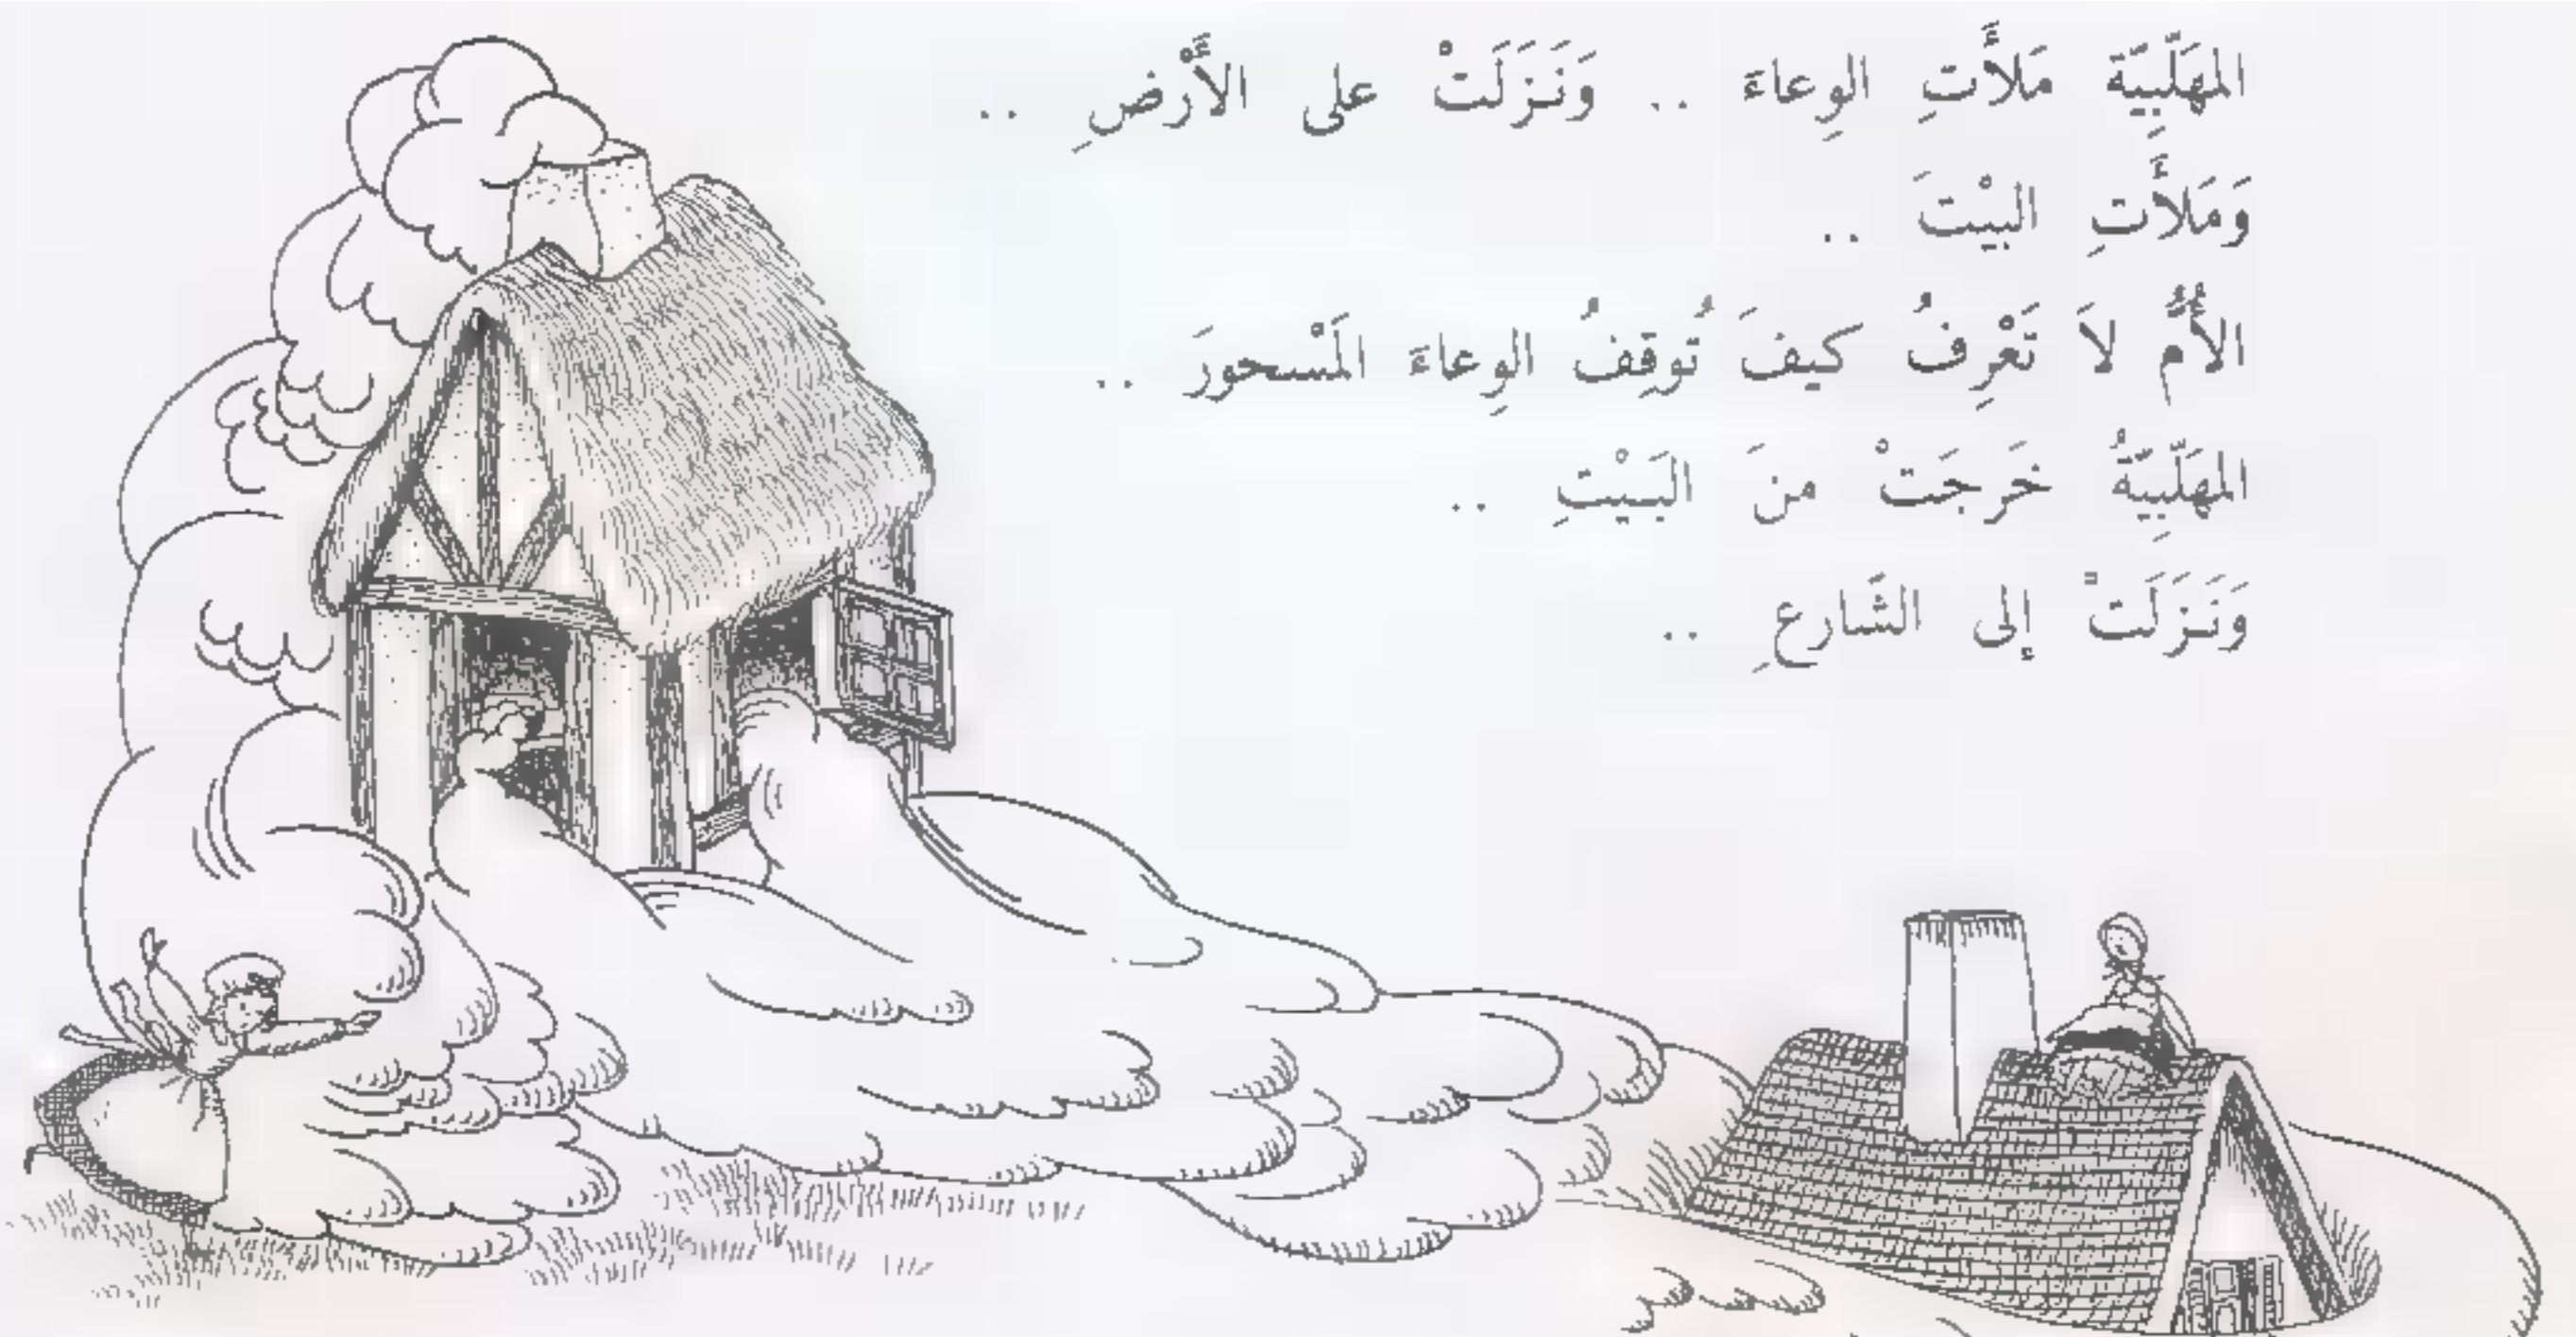 المهَلَّبِيَّة مَلأَتِ الوِعاءَ .. وَنَزَلَتْ على الأَرْضِ ..
وَمَلأَتِ البيْتَ ..
الأُمُّ لاَ تَعْرِفُ كيفَ تُوقِفُ الوِعاءَ المَسْحورَ ..
المهَلَّبِيَّةُ خَرجَتْ منَ البَيْتِ ..
وَنَزَلَتْ إلى الشَّارعِ ..